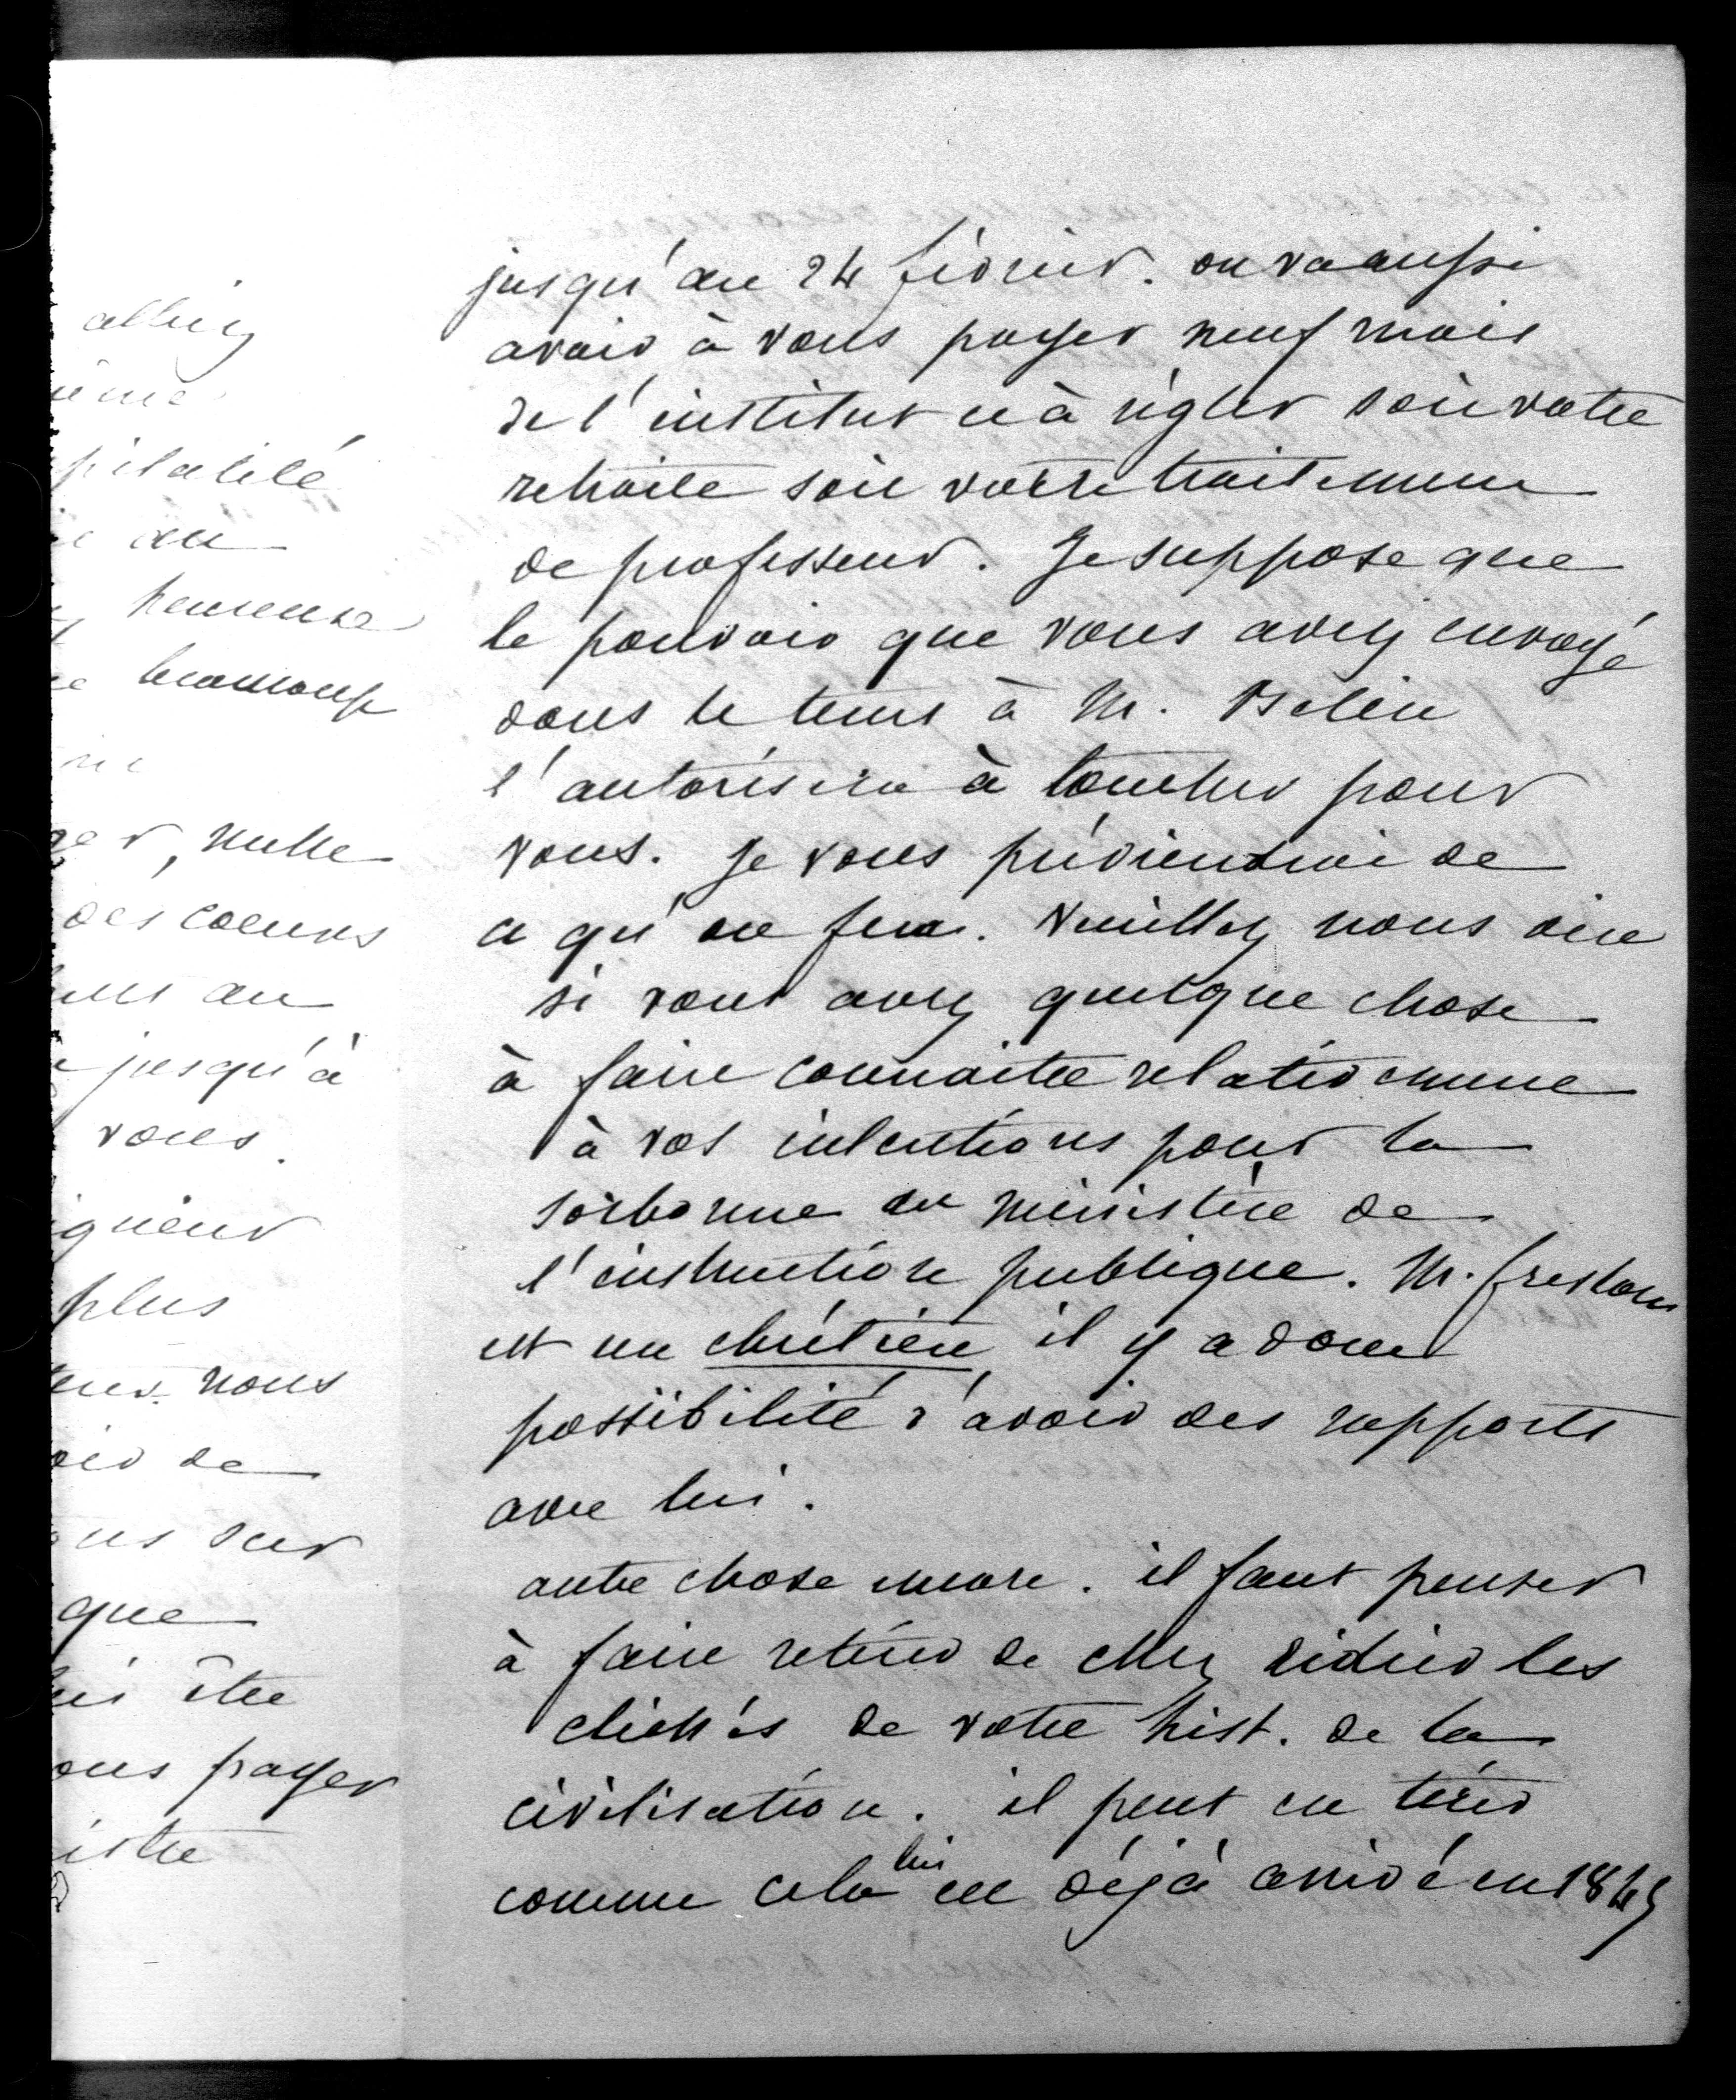 alliez
pitalité
au
heureuse
beaucoup
, nulle
des coeurs
au
jusqu'à
vous.
plus
nous
de
sur
que
être
payer
jusqu'au 24 février. on va aussi
avoir à vous payer neuf mois
de l'institut et à régler soit votre
retraite soit votre traitement
de professeur. Je suppose que
le pouvoir que vous avez envoyé
dans le tems à M. Belin
l'autorisera à toucher pour
vous. Je vous préviendrai de
ce qu'on fera. Veuillez nous dire
si vous avez quelque chose
à faire connaitre relativement
à vos intentions pour la
sorbonne au ministère de
l'instruction publique. M. freslon
est un chrétien, il y a donc
possibilité d'avoir des rapports
avec lui.
autre chose encore. il faut penser
à faire retirer de chez didier les
clichés de votre hist. de la
civilisation. il peut en tirer
comme cela lui est déjà arrivé en 1845